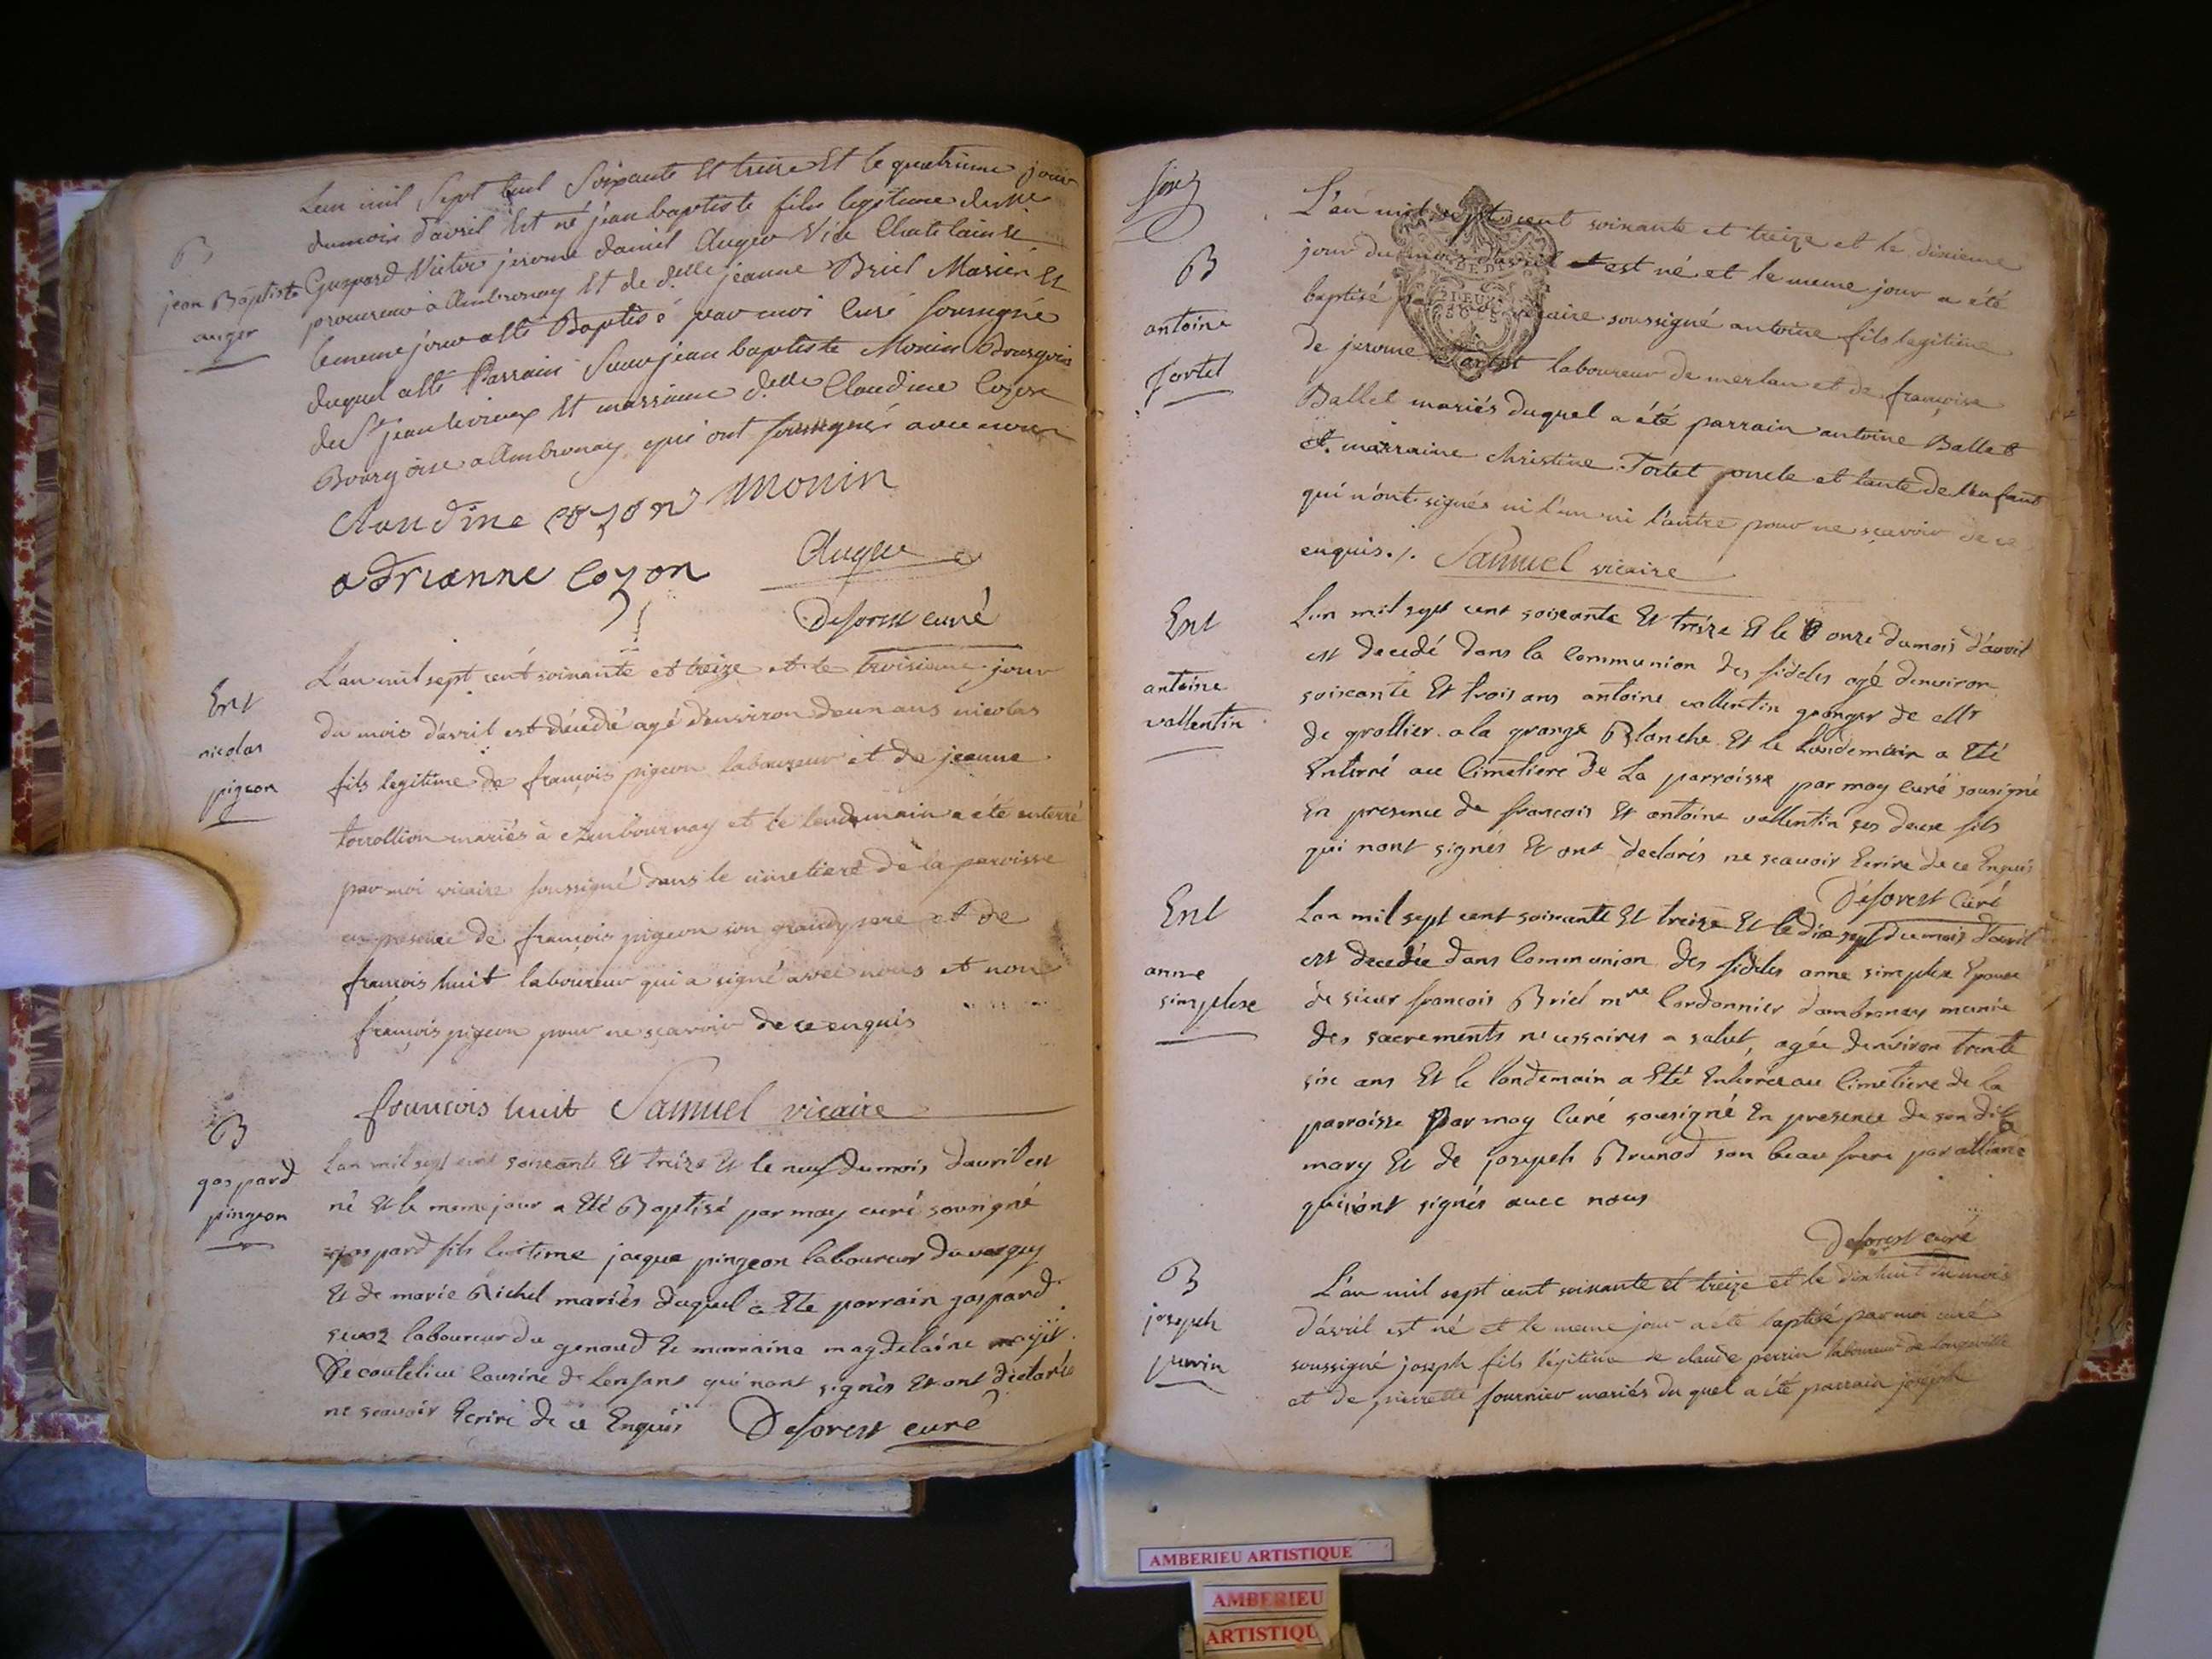 B
jean Baptiste
auger
L'an mil Sept Cent Soixante Et treize Et le quatrieme jour
du mois d'avril Est né jean baptiste fils legitime de Me
Gaspard Victor jerome daniel Auger Vice Chatelain Et
procureur à Ambronay Et de delle jeanne Briel Mariés Et
le meme jour a été Baptisé par moi Curé Soussigné
duquel a été Parrain Sieur jean baptiste Monin Bourgeois
de St jean le vieux Et marraine delle Claudine Cozon
Bourgoise a Ambronay qui ont soussignés avec nous
Claudine cozon Monin
adrianne Cozon Auger
Deforest curé
Ent
nicolas
pigeon
L'an mil sept cent soixante et treize et le troisieme jour
du mois d'avril est décédé agé d'environ deux ans nicolas
fils legitime de françois pigeon laboureur et de jeanne
mariés à Ambournay et le lendemain a été enterré
par moi vicaire soussigné dans le cimetiere de la paroisse
en présence de françois pigeon son grand pere et de
françois huit laboureur qui a signé avec nous et non
françois pigeon pour ne sçavoir de ce enquis
françois huit Samuel vicaire
B
gaspard
pingeon
Lan mil sept cent soixante Et treize Et le neuf du mois d'avril est
né Et le meme jour a Eté Baptisé par moy curé sousigné
gaspard fils leitime jacque pingeon laboureur
Et de marie Richel mariés duquel a Ete parrain gaspard
laboureur du genoud Et marraine magdelaine
De coutelieu Cousine de Lenfant qui nont signés Et ont declarés
ne scavoir Ecrire de ce Enquis Deforest curé
B
antoine
Tortet
L'an mil sept cent soixante et treize et le dixieme
jour du mois d'avril est né et le meme jour a été
baptisé par moi vicaire soussigné antoine fils legitime
de jerome Tortet laboureur de merlan et de françoise
Ballet mariés duquel a été parrain antoine Ballet
et marraine christine Tortet oncle et tante de l'enfant
qui n'ont signés ni l'un ni l'autre pour ne sçavoir de ce
enquis ./. Samuel vicaire
Ent
antoine
vallentin
Lan mil sept cent soixante Et treize Et le onze du mois d'avril
est decedé dans la Communion des fideles agé denviron
soixante Et trois ans antoine vallentin granger de Mr
de grollier a la grange Blanche Et le landemain a Eté
Enterré au Cimetiere de La parroisse par moy Curé sousigné
En presence de francois Et antoine vallentin ses deux fils
qui nont signés Et ont declarés ne scavoir Ecrire de ce Enquis
Deforest Curé
Ent
anne
simplex
Lan mil sept cent soixante Et treize Et le dix sept du mois d'avril
est decedée dans Communion des fideles anne simplex Epouse
de sieur francois Briel mre Cordonnier dambronay munie
des sacrements necessaires a salut, agée denviron trente
six ans Et le landemain a Eté Enterrée au Cimetiere de la
parroisse Par moy Curé sousigné En presence de son dit
mary Et de joseph Brunod son beau frere par alliance
qui ont signés avec nous
Deforest curé
B
joseph
perrin
L'an mil sept cent soixante et treize et le dix huit du mois
d'avril est né et le meme jour a été baptisé par moi curé
soussigné joseph fils légitime de claude perrin laboureur de longeville
et de pierrette fournier mariés du quel a été parrain joseph
AMBERIEU ARTISTIQUE
AMBERIEU
ARTISTIQU